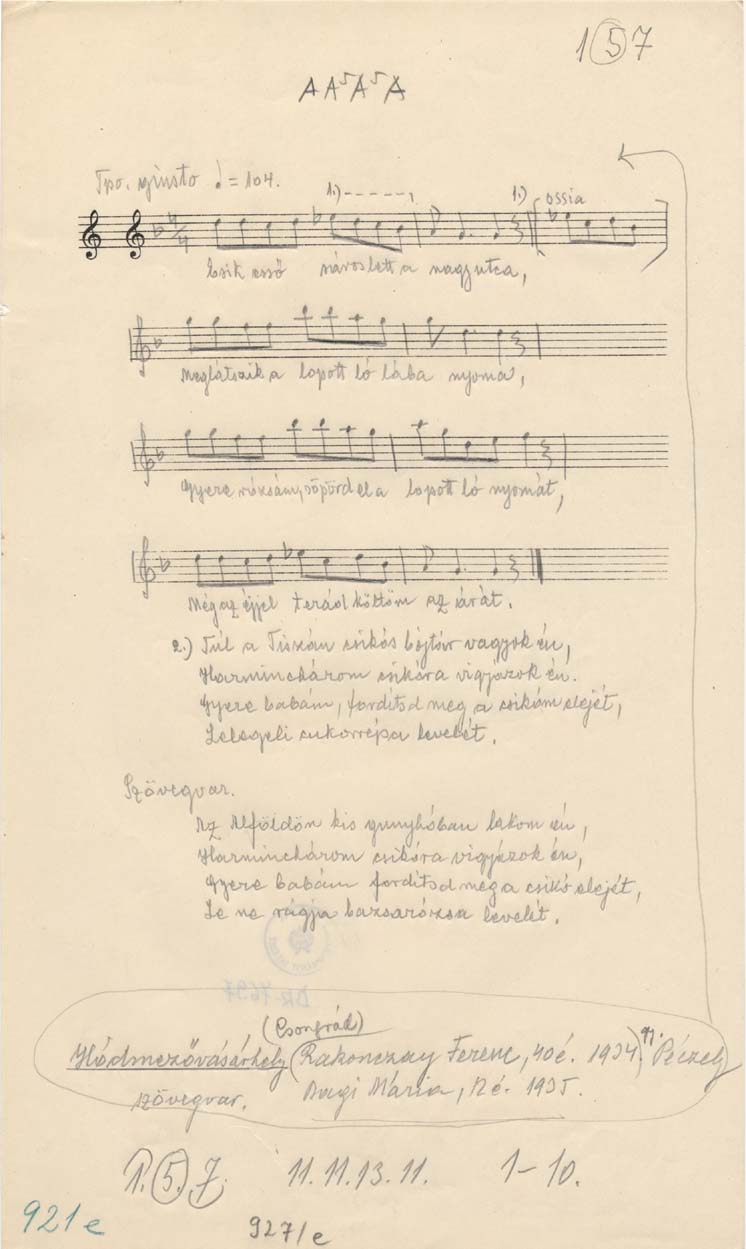 1(5)7
A A⁵ A⁵ A
Tpo. giusto ♩= 104.
1.) 1.) ossia
4/4
Esik eső sáros lett a nagy utca,
Meglátszik a lopott ló lába nyoma,
Gyere rózsám, söpörd el a lopott ló nyomát,
Még az éjjel terád költöm az árát.
2.) Túl a Tiszán csikós bojtár vagyok én,
Harminchárom csikóra vigyázok én.
Gyere babám, fordítsd meg a csikóm elejét,
Lelegeli cukorrépa levelét.
Szövegvar.
Az Alföldön kis gunyhóban lakom én,
Harminchárom csikóra vigyázok én,
Gyere babám fordítsd meg a csikó elejét,
Le ne rágja bazsarózsa levelét.
(Csongrád)
Hódmezővásárhely (Rakonczay Ferenc, 40 é. 1934) gy. Péczely
szövegvar. Nagi Mária, 12 é. 1935.
1.(5.)7. 11. 11. 13. 11. 1-10.
921e
927/e